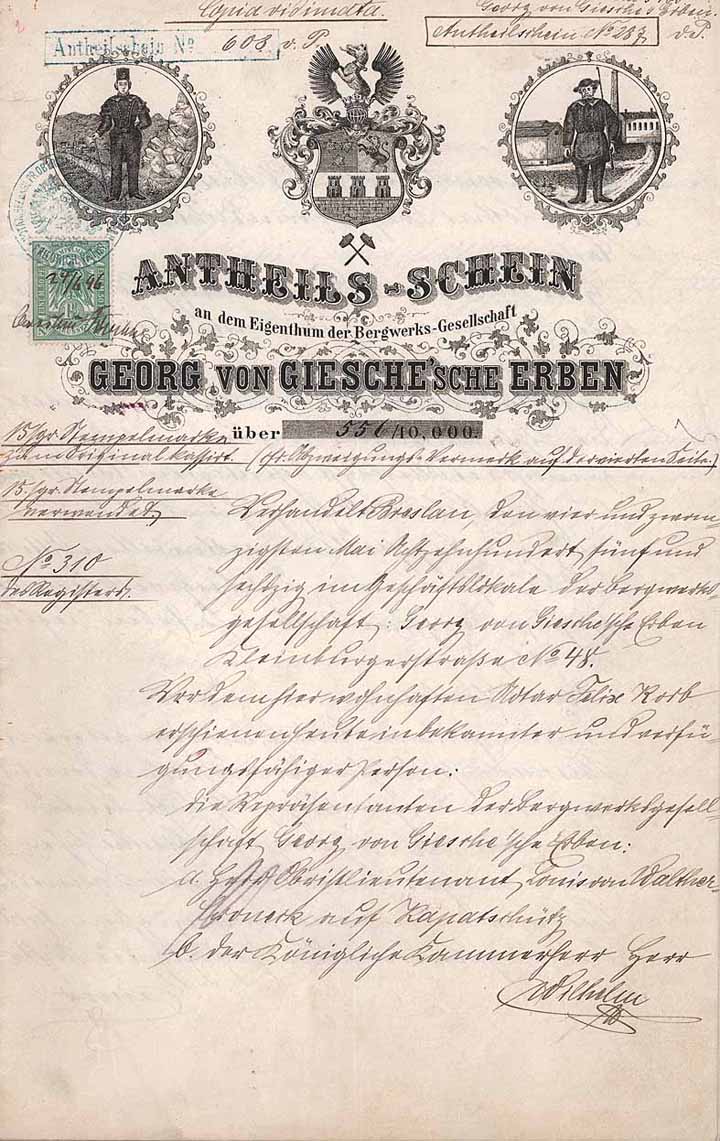 Copia vidimata.
Georg von Giesche's Erben
Antheilschein No 608 v. P
Antheilschein No 237 des
24/6 96
ANTHEILS-SCHEIN
an dem Eigenthum der Bergwerks-Gesellschaft
GEORG VON GIESCHE'SCHE ERBEN
über 556/10,000.
15 sgr. Stempelmarke
zum Original kassirt. (cfr. Abzweigungs-Vermerk auf der vierten Seite.)
15 sgr. Stempelmarke
verwendet
No 310
des Registers.
Verhandelt Breslau, den vier und zwan-
zigsten Mai Achtzehnhundert fünf und
sechszig im Geschäftslokale der Bergwerks-
gesellschaft: Georg von Giesche'sche Erben
Kleinburgerstraße No 48.
Vor dem hier wohnhaften Notar Felix Korb
erschienen heute in bekannter und verfü-
gungsfähiger Person:
die Repräsentanten der Bergwerksgesell-
schaft Georg von Giesche'sche Erben:
a. Herr Obristlieutenant Louis von Walther-
Croneck auf Kapatschütz
b. der Königliche Kammerherr Herr
Wilhelm